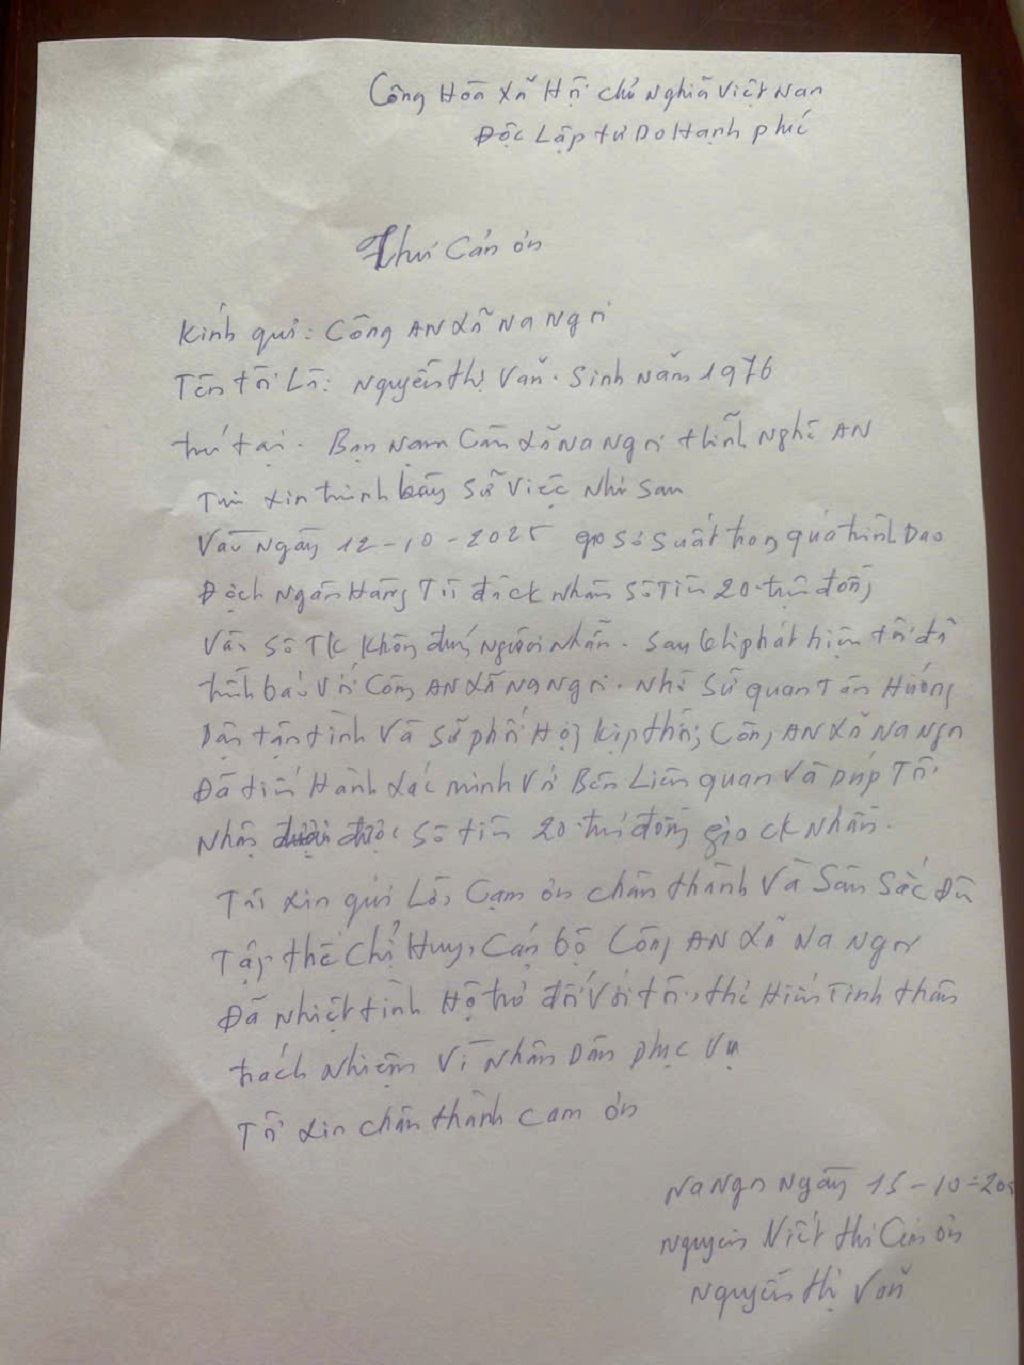 Công Hòa Xã Hội chủ Nghĩa Việt Nan
Độc Lập tự Do Hạnh phúc
Thư Cản ơn
Kính gửi: Công AN Xã Na Ngoi
Tên tôi Là: Nguyễn thị Vân. Sinh Năm 1976
trú tại. Bản Nam Cắn Xã Na Ngoi tỉnh Nghệ AN
Tôi xin trình bày Sữ việc Như Sau
Vào Ngày 12-10-2025 do Sơ Suất trong quá trình Dao
Dịch Ngân Hàng Tôi đã ck Nhầm Số Tiền 20 triệu đồng
Vào Số TK Không đúng Người Nhận. Sau khi phát hiện tôi đã
trình báo Với Công AN Xã Na Ngoi. Nhờ Sữ quan Tâm Hướng
Dẫn tận tình Và Sữ phối Hợp kịp thời, Công AN Xã Na Ngoi
Đã tiến Hành Xác minh Với Bên Liên quan Và Dúp Tôi
Nhận được Số tiền 20 triệu đồng do ck Nhầm.
Tôi xin gửi Lời Cảm ơn chân thành Và Sâu Sắc Đến
Tập thể Chỉ Huy, Cán bộ Công AN Xã Na Ngoi
Đã Nhiệt tình Hộ trợ đối Với tôi, thể Hiện Tinh thần
trách Nhiệm Vì Nhân Dân phục Vụ
Tôi xin chân thành cam ơn
Na Ngoi Ngày 15-10-20
Người Viết thư Cảm ơn
Nguyễn thị Vân